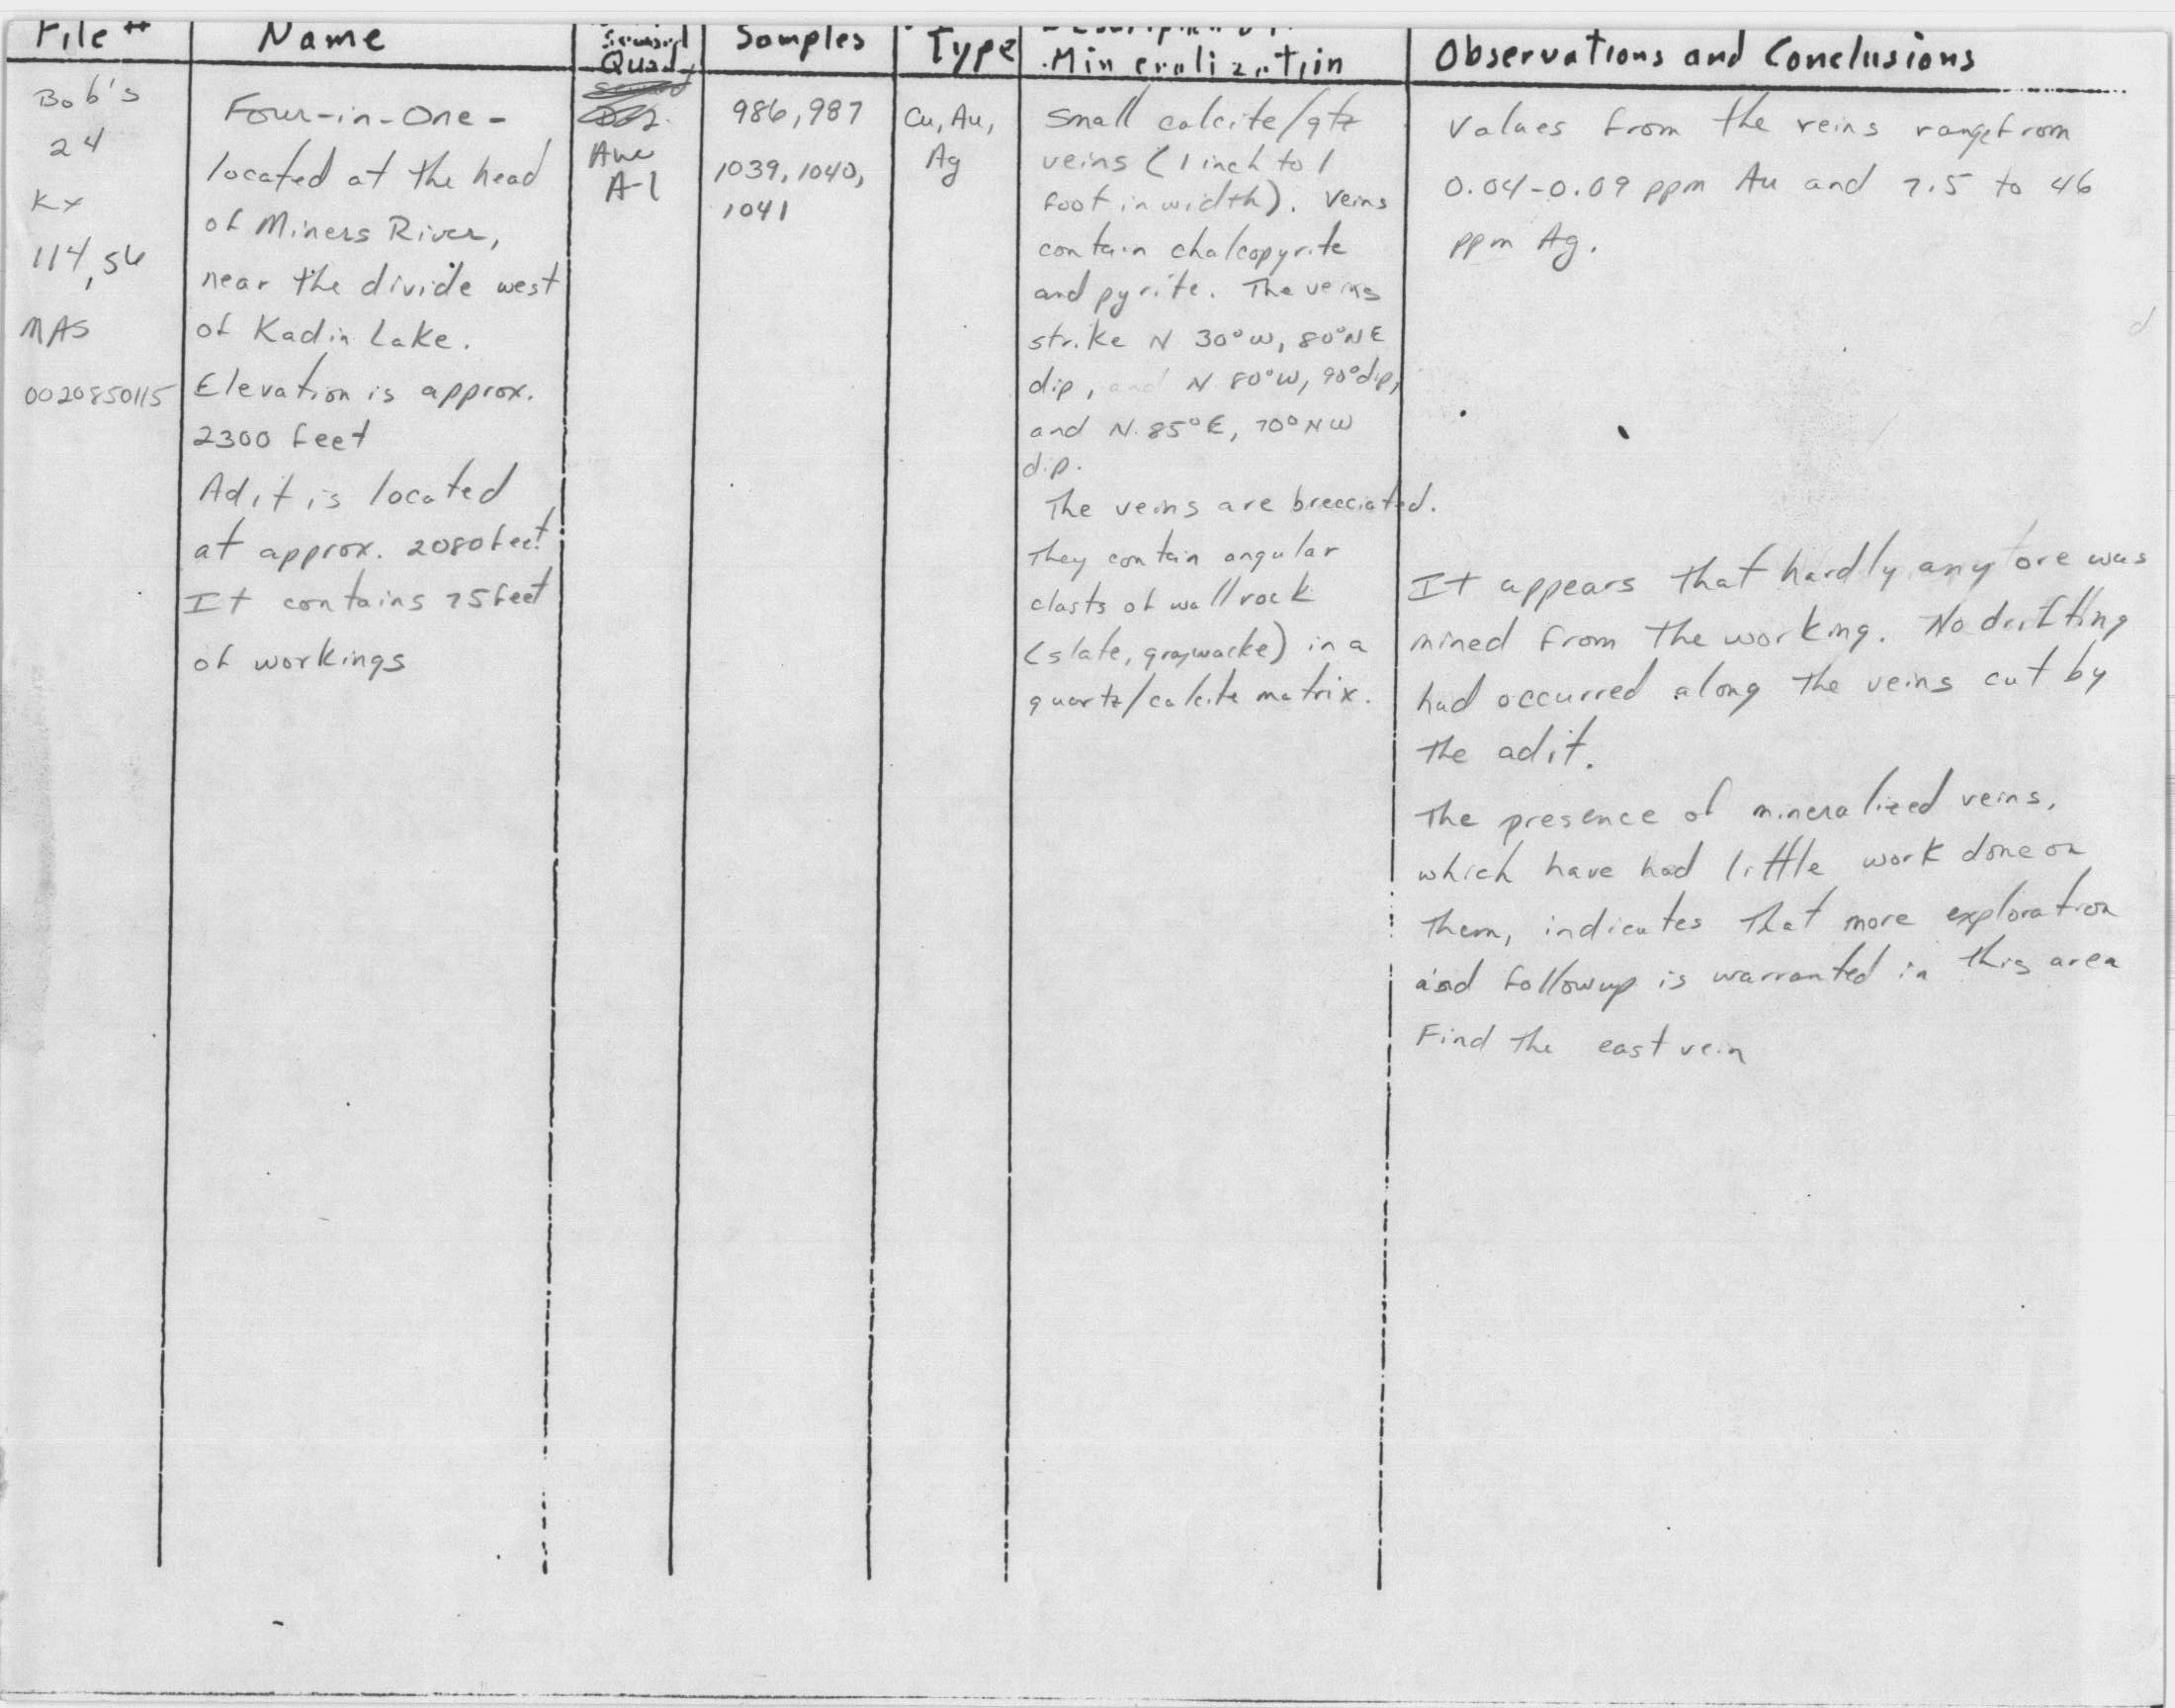 File #
Name
Seward
Quad
Samples
Type
Mineralization
Observations and Conclusions
Bob's
24
Kx
114, 56
MAS
0020850115
Four-in-One-
located at the head
of Miners River,
near the divide west
of Kadin Lake.
Elevation is approx.
2300 feet
Adit is located
at approx. 2080 feet
It contains 75 feet
of workings
Anc
A-1
986, 987
1039, 1040,
1041
Cu, Au,
Ag
Small calcite/qtz
veins (1 inch to 1
foot in width). Veins
contain chalcopyrite
and pyrite. The veins
strike N 30°W, 80°NE
dip, and N 80°W, 90°dip,
and N 85°E, 70°NW
dip.
The veins are brecciated.
They contain angular
clasts of wallrock
(slate, graywacke) in a
quartz/calcite matrix.
Values from the veins range from
0.04-0.09 ppm Au and 7.5 to 46
ppm Ag.
It appears that hardly any ore was
mined from the working. No drifting
had occurred along the veins cut by
the adit.
The presence of mineralized veins,
which have had little work done on
them, indicates that more exploration
and followup is warranted in this area
Find the east vein